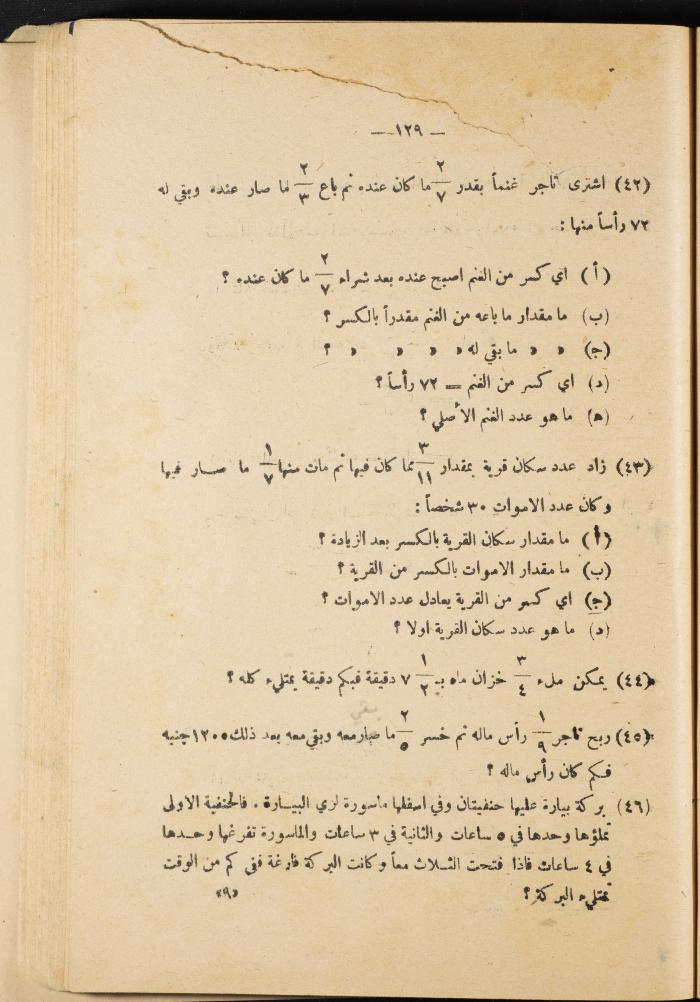 — ١٢٩ —
(٤٢) اشترى تاجر غنماً بقدر ٢/٧ ما كان عنده ثم باع ٢/٣ ما صار عنده وبقي له
٧٢ رأساً منها :
( أ ) اي كسر من الغنم اصبح عنده بعد شراء ٢/٧ ما كان عنده ؟
(ب) ما مقدار ما باعه من الغنم مقدراً بالكسر ؟
(ج) » » ما بقي له » » » » ؟
(د) اي كسر من الغنم = ٧٢ رأساً ؟
(ه) ما هو عدد الغنم الأصلي ؟
(٤٣) زاد عدد سكان قرية بمقدار ٣/١١ مما كان فيها ثم مات منها ١/٧ ما صار فيها
وكان عدد الاموات ٣٠ شخصاً :
(أ) ما مقدار سكان القرية بالكسر بعد الزيادة ؟
(ب) ما مقدار الاموات بالكسر من القرية ؟
(ج) اي كسر من القرية يعادل عدد الاموات ؟
(د) ما هو عدد سكان القرية اولا ؟
(٤٤) يمكن ملء ٣/٤ خزان ماء بـ ١/٢ ٧ دقيقة فبكم دقيقة يمتليء كله ؟
بقي
(٤٥) ربح تاجر ١/٩ رأس ماله ثم خسر ٢/٥ ما صار معه وبقي معه بعد ذلك ١٢٠٠ جنيه
فكم كان رأس ماله ؟
(٤٦) بركة بيارة عليها حنفيتان وفي اسفلها ماسورة لري البيارة . فالحنفية الاولى
تملؤها وحدها في ٥ ساعات والثانية في ٣ ساعات والماسورة تفرغها وحدها
في ٤ ساعات فاذا فتحت الثلاث معاً وكانت البركة فارغة ففي كم من الوقت
تمتليء البركة ؟
«٩»